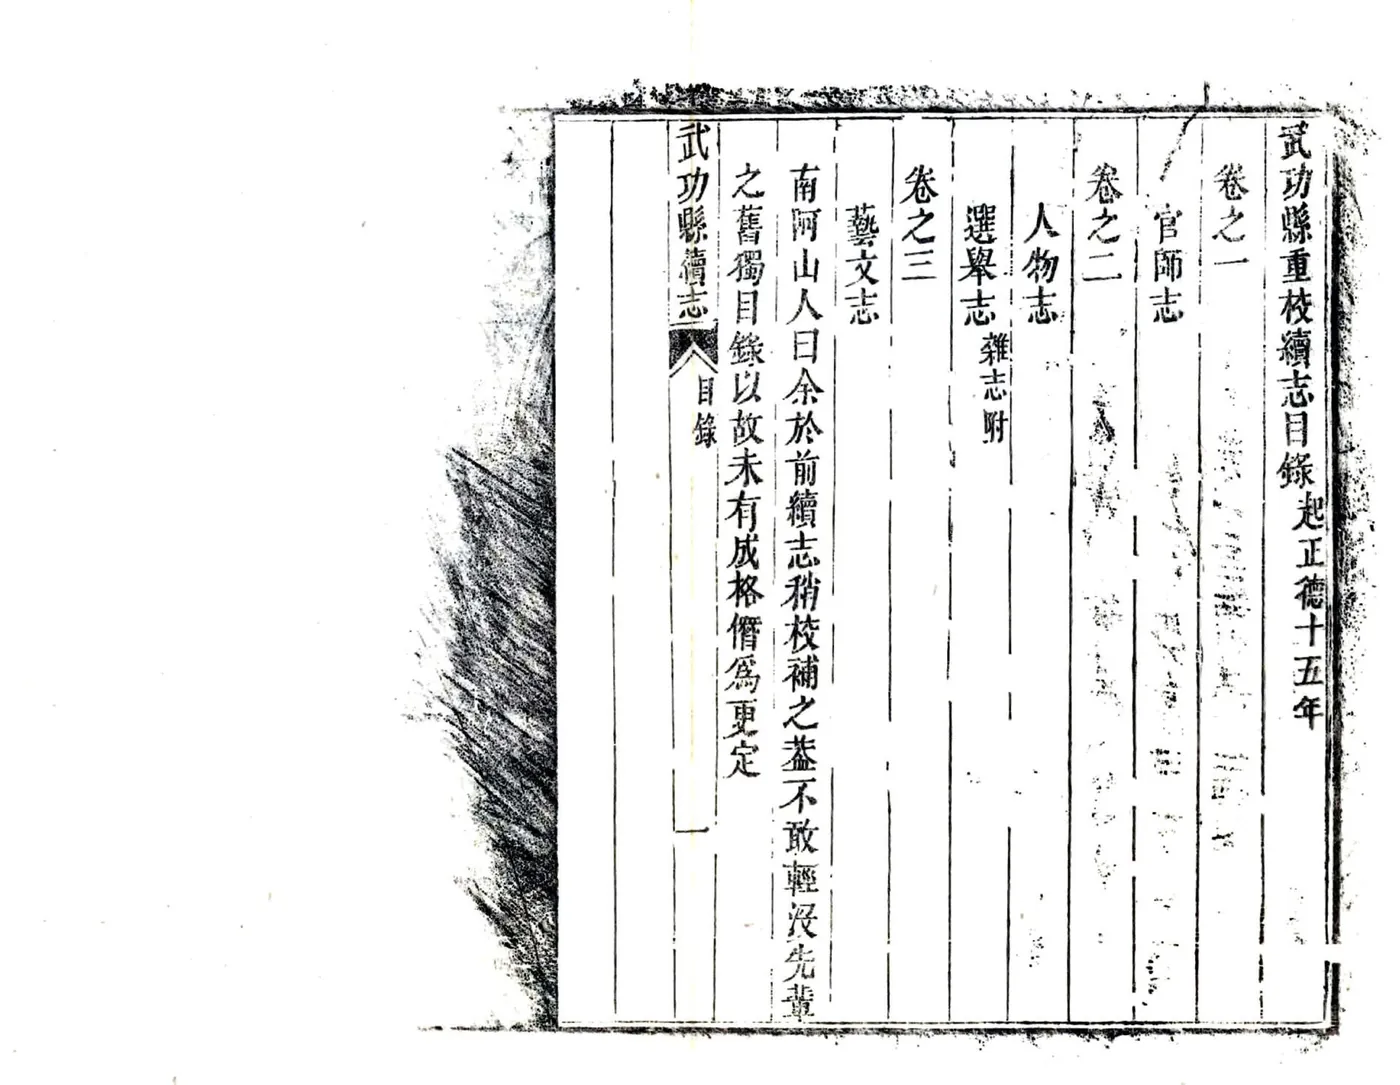 武功縣重校續志目錄起正德十五年
卷之一
官師志
卷之二
人物志
選舉志雜志附
卷之三
藝文志
南阿山人曰余於前續志稍校補之葢不敢輕沒先輩
之舊獨目錄以故未有成格僭爲更定
武功縣續志 目錄 一